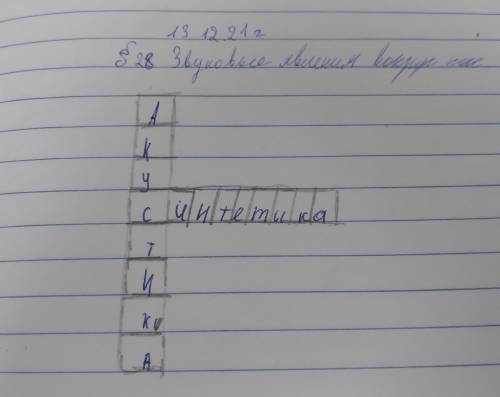 13.12.21г
§28 Звуковые явления вокруг нас
А
К
У
Синтетика
Т
И
К
А